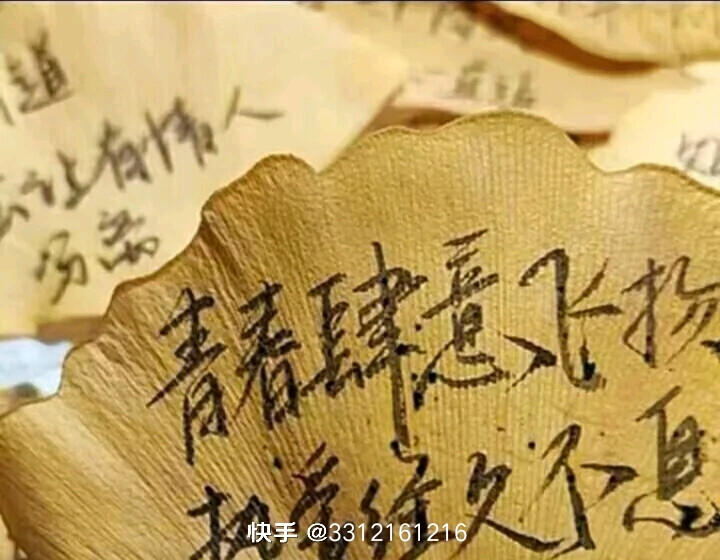 道
让有情人
青春肆意飞扬
热爱经久不息
快手 @3312161216